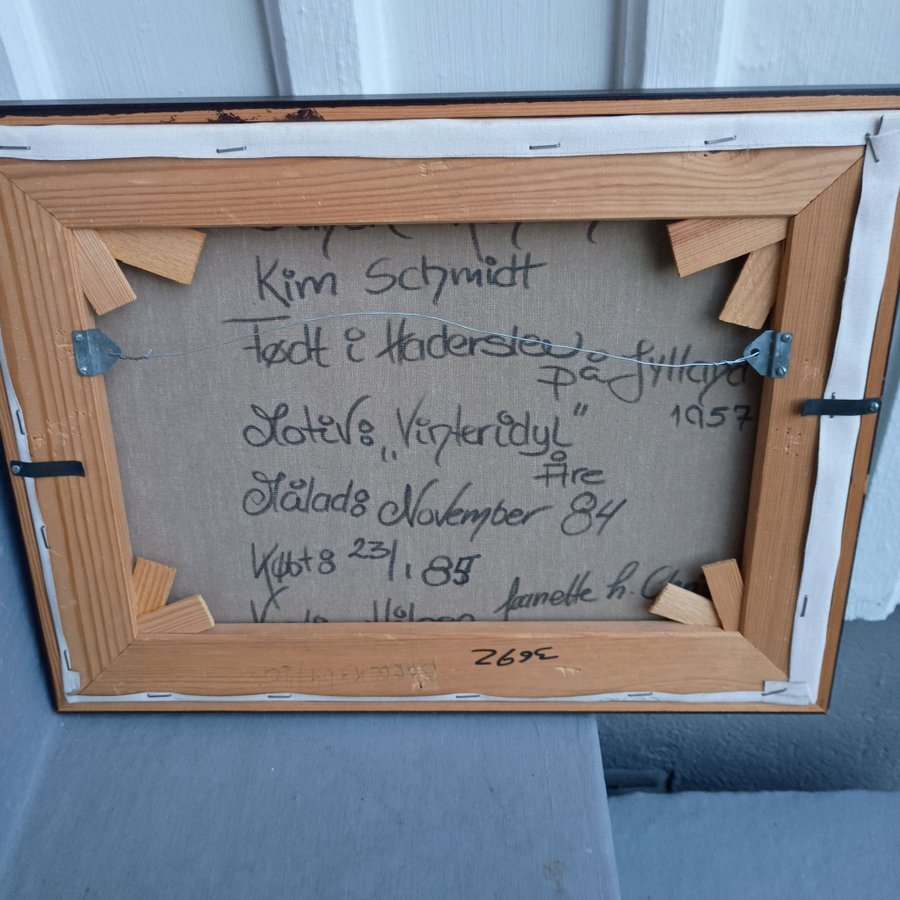 Kim Schmidt
Født i Haderslev
på Jylland
1957
Motiv: „Vinteridyl"
Åre
Målad: November 84
Købt: 23/1 85
Jeanette h.
3692